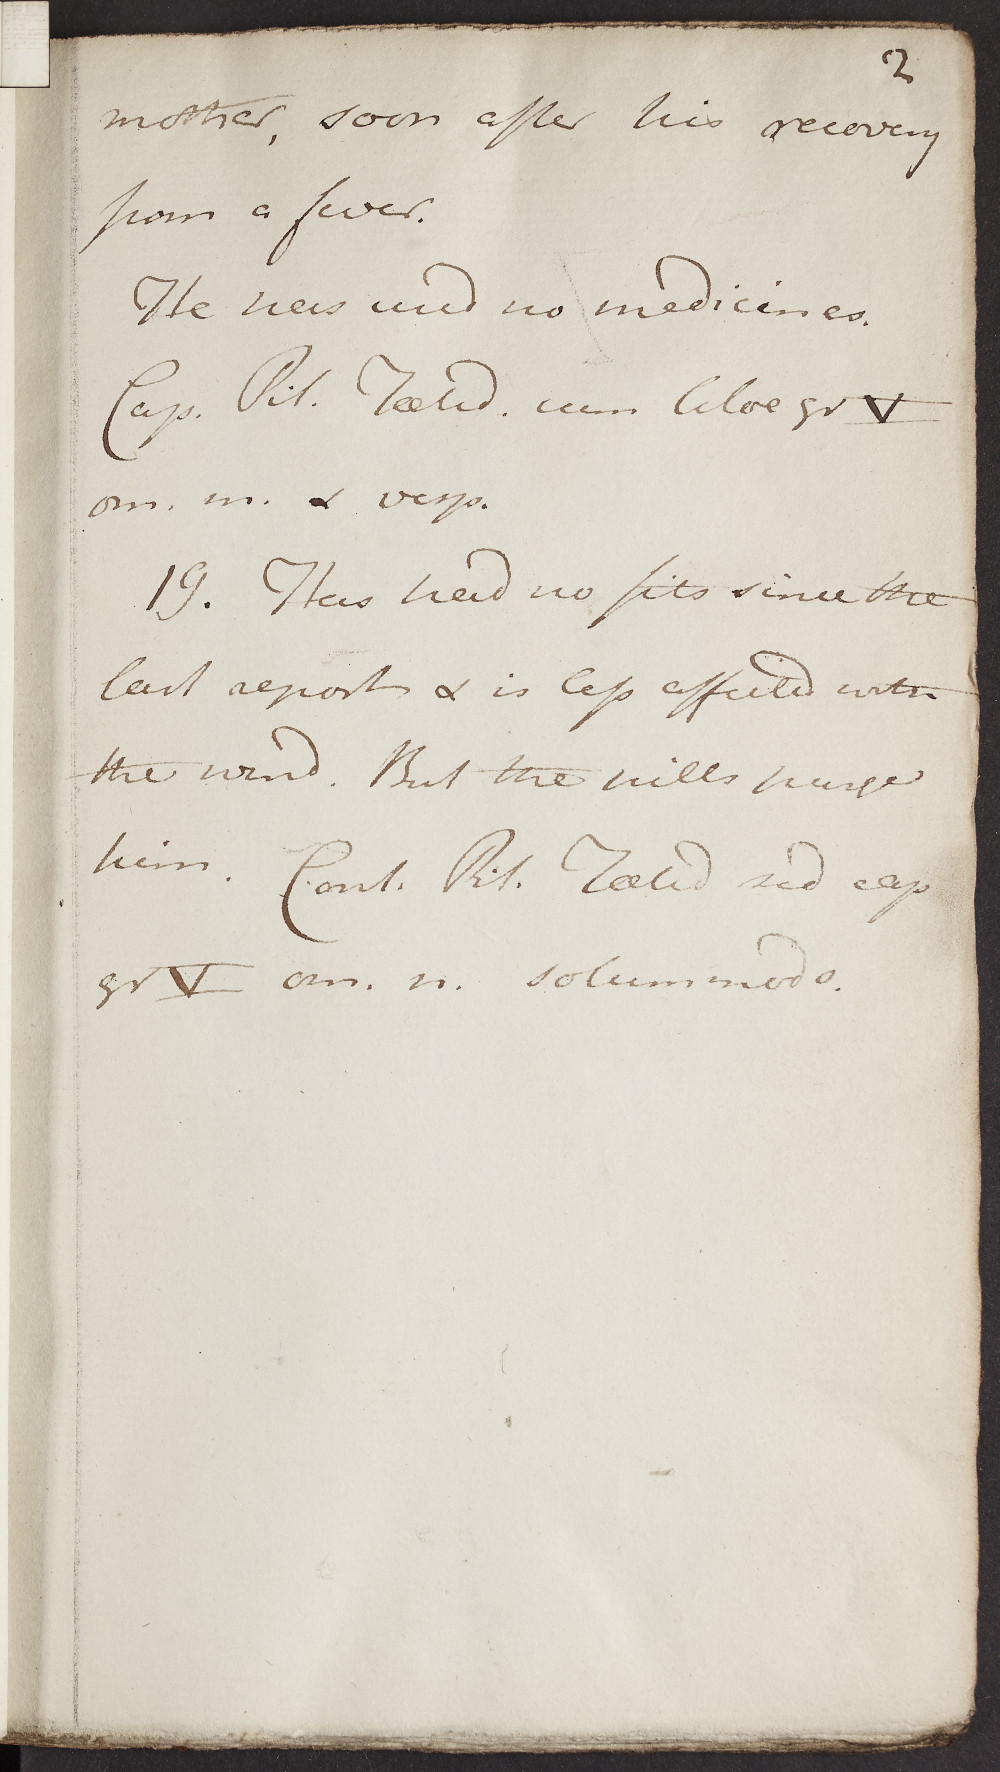 2
mother, soon after his recovery
from a fever.
He has used no medicines.
Cap. Pil. Fœtid. cum Aloe gr V
om. m. & vesp.
19. Has had no fits since the
last report & is less affected with
the wind. But the pills purge
him. Cont. Pil. Fœtid sed cap
gr V om. n. solummodo.